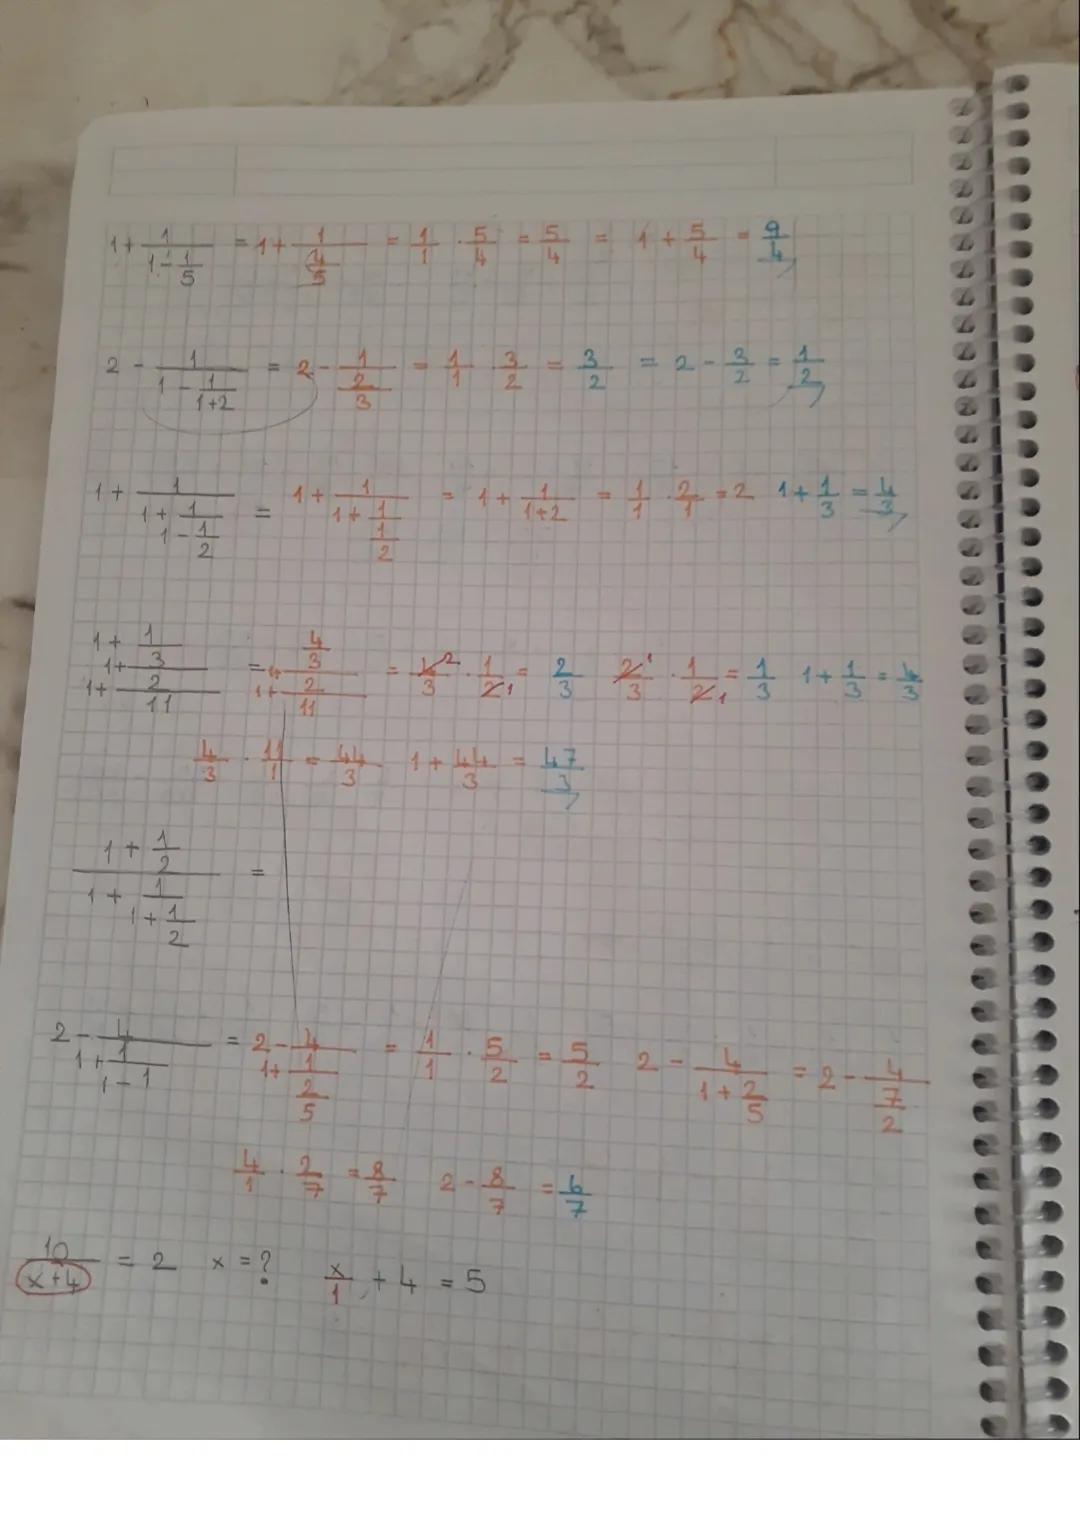 1 + 1/(1 - 1/5) = 1 + 1/(4/5) = 1/1 · 5/4 = 5/4 = 1 + 5/4 = 9/4
2 - 1/(1 - 1/(1+2)) = 2 - 1/(2/3) = 1/1 3/2 = 3/2 = 2 - 3/2 = 1/2
1 + 1/(1 + 1/(1 - 1/2)) = 1 + 1/(1 + 1/(1/2)) = 1 + 1/(1+2) = 1/1 · 2/1 = 2 1 + 1/3 = 4/3
1 + (1 + 1/3)/(1 + 2/11) = 1 + (4/3)/(1 + 2/11) = 4/3 · 1/2 = 2/3 2/3 · 1/2 = 1/3 1 + 1/3 = 4/3
4/3 · 11/1 = 44/3 1 + 44/3 = 47/3
(1 + 1/2)/(1 + 1/(1 + 1/2)) =
2 - 4/(1 + 1/(1 - 1)) = 2 - 4/(1 + 1/(2/5)) = 1/1 · 5/2 = 5/2 2 - 4/(1 + 2/5) = 2 - 4/(7/2)
4/1 · 2/7 = 8/7 2 - 8/7 = 6/7
10/(x+4) = 2 x = ? x/1 + 4 = 5